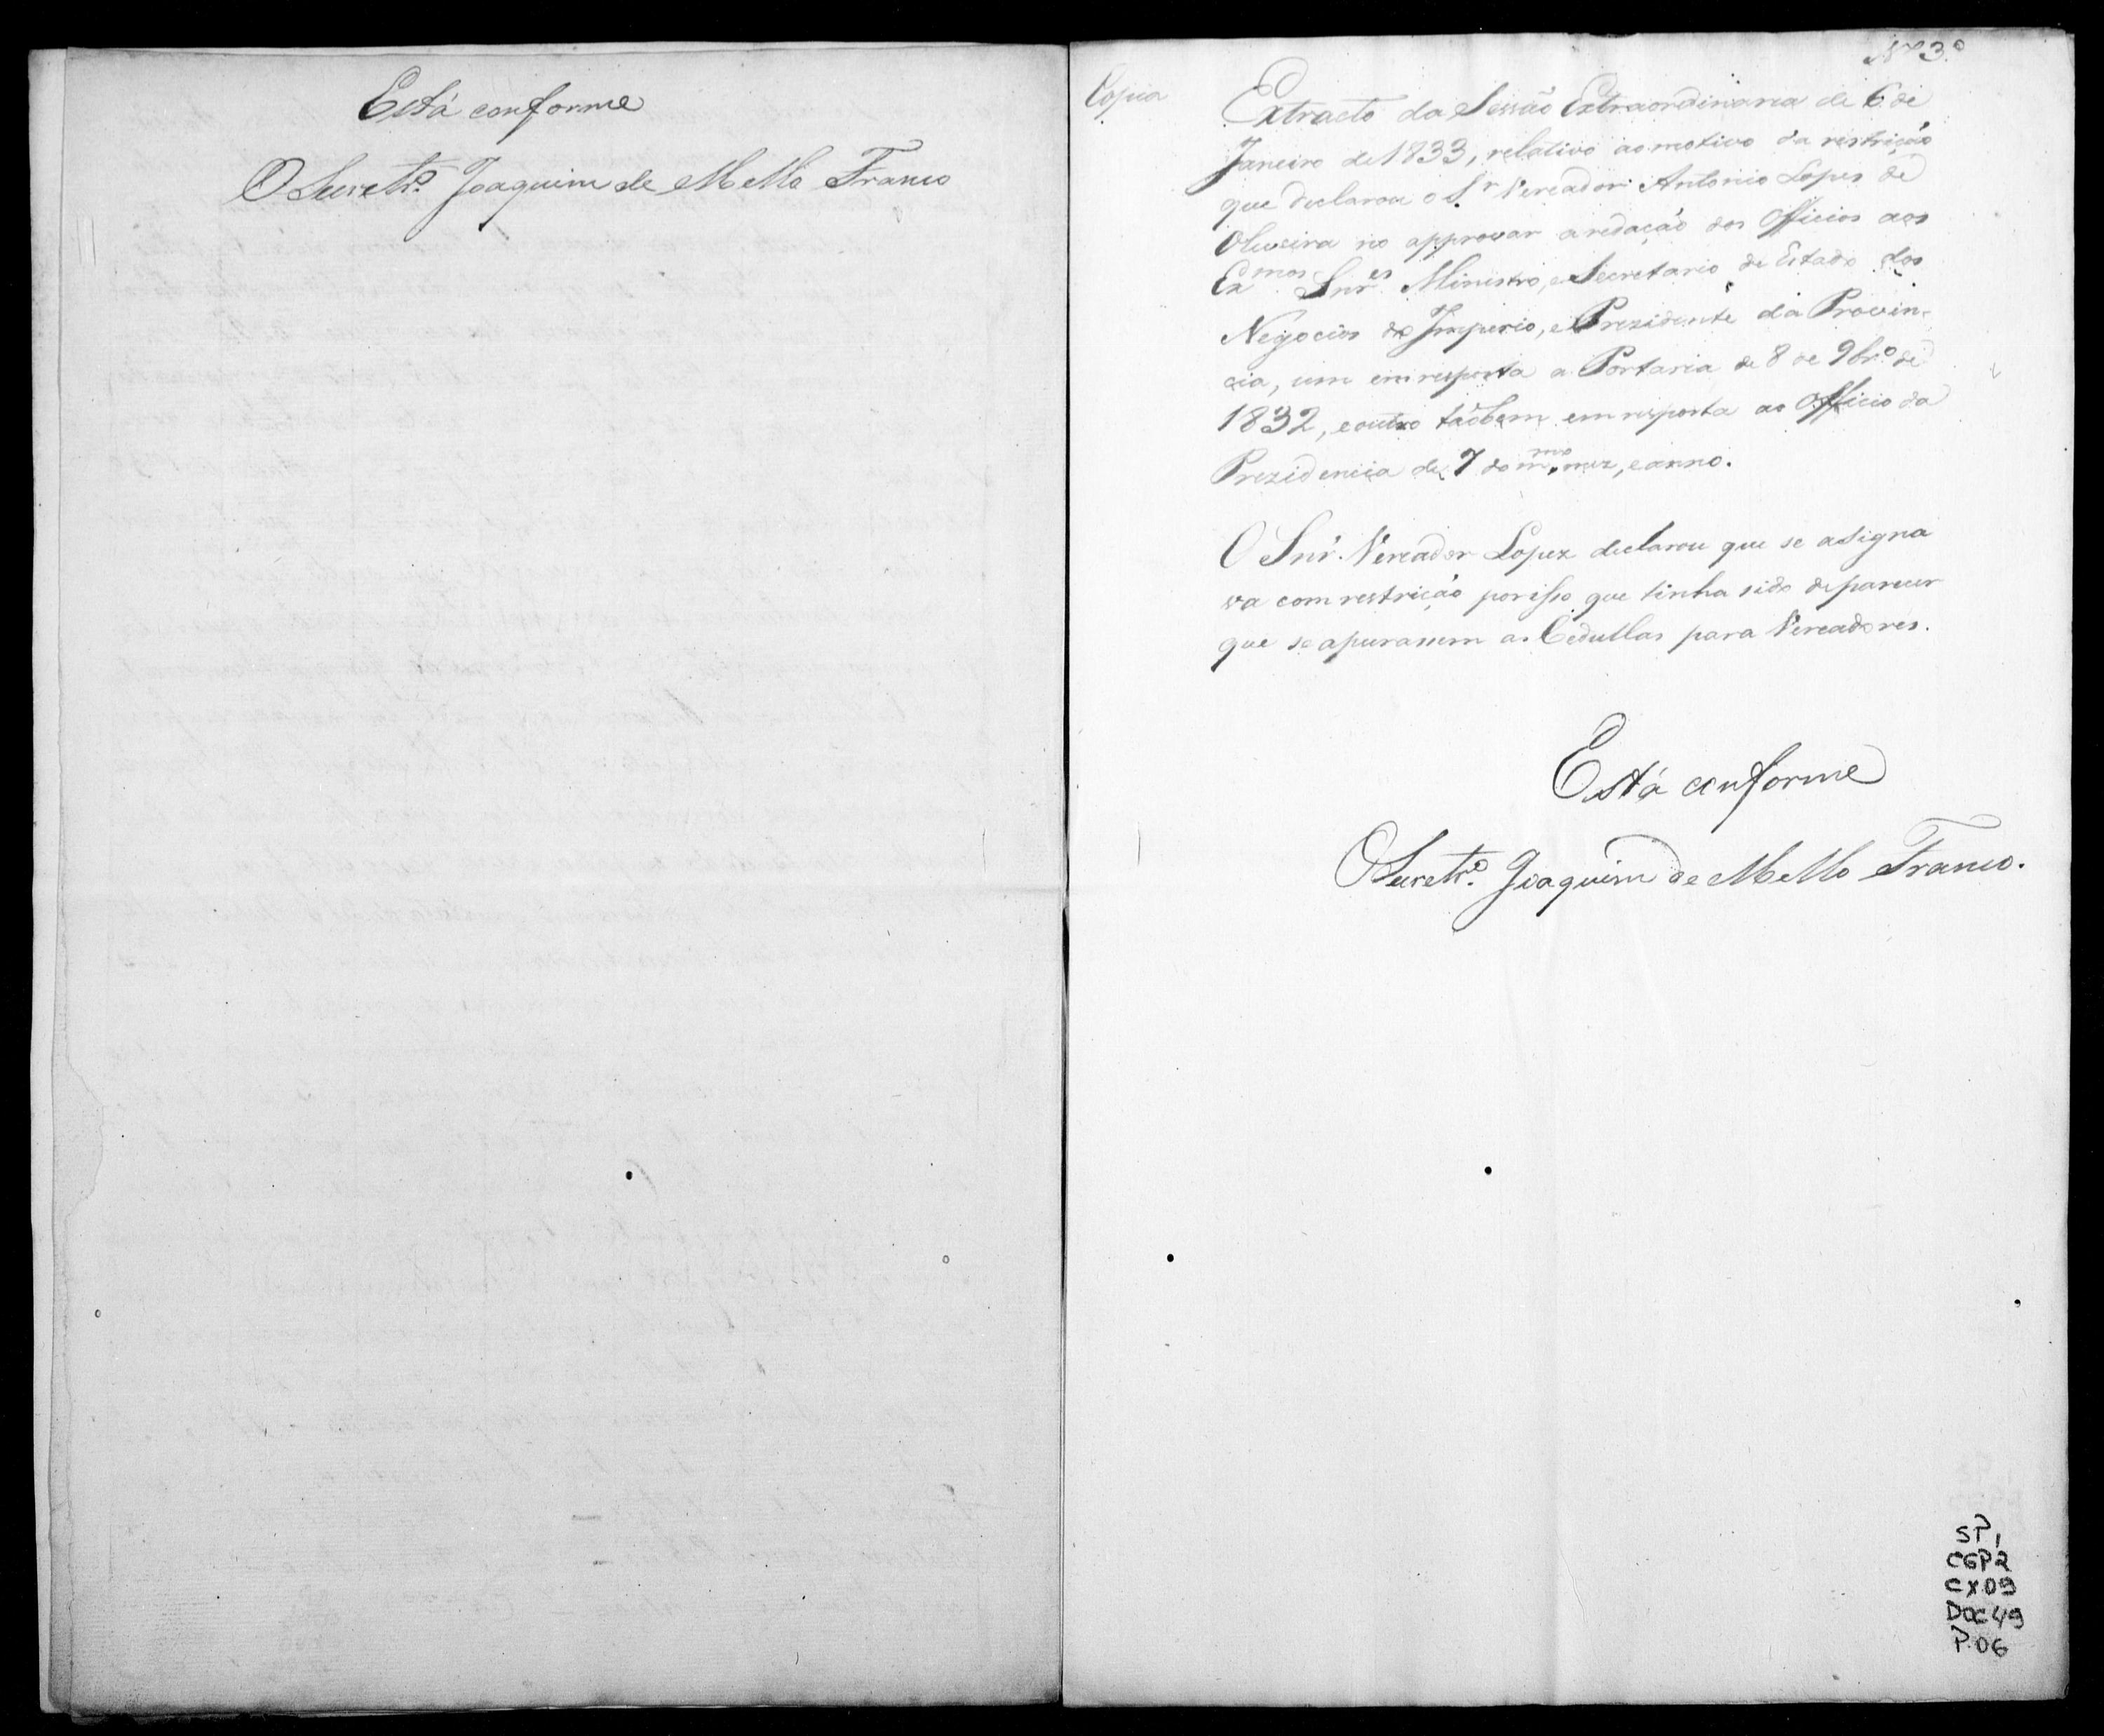 Está conforme
O Secretrº. Joaquim de Mello Franco
Nº 3º
Copia
Extracto da Sessão Extraordinaria de 6 de
Janeiro de 1833, relativo ao motivo da restrição
que declarou o Sr Vereador Antonio Lopes de
Oliveira no approvar a redação dos Officios aos
Exmos Snres Ministro, e Secretario de Estado dos
Negocios do Imperio, e Prezidente da Provin-
cia, um em resposta a Portaria de 8 de 9brº de
1832, e outro tãobem em resposta ao Officio da
Prezidencia de 7 do mmo mez, e anno.
O Snr. Vereador Lopez declarou que se asigna
va com restrição porisso que tinha sido de parecer
que se apurassem as Cedullas para Vereadores.
Está conforme
O Secretrº. Joaquim de Mello Franco.
SP,
CGP2
CX09
DOC49
P.06